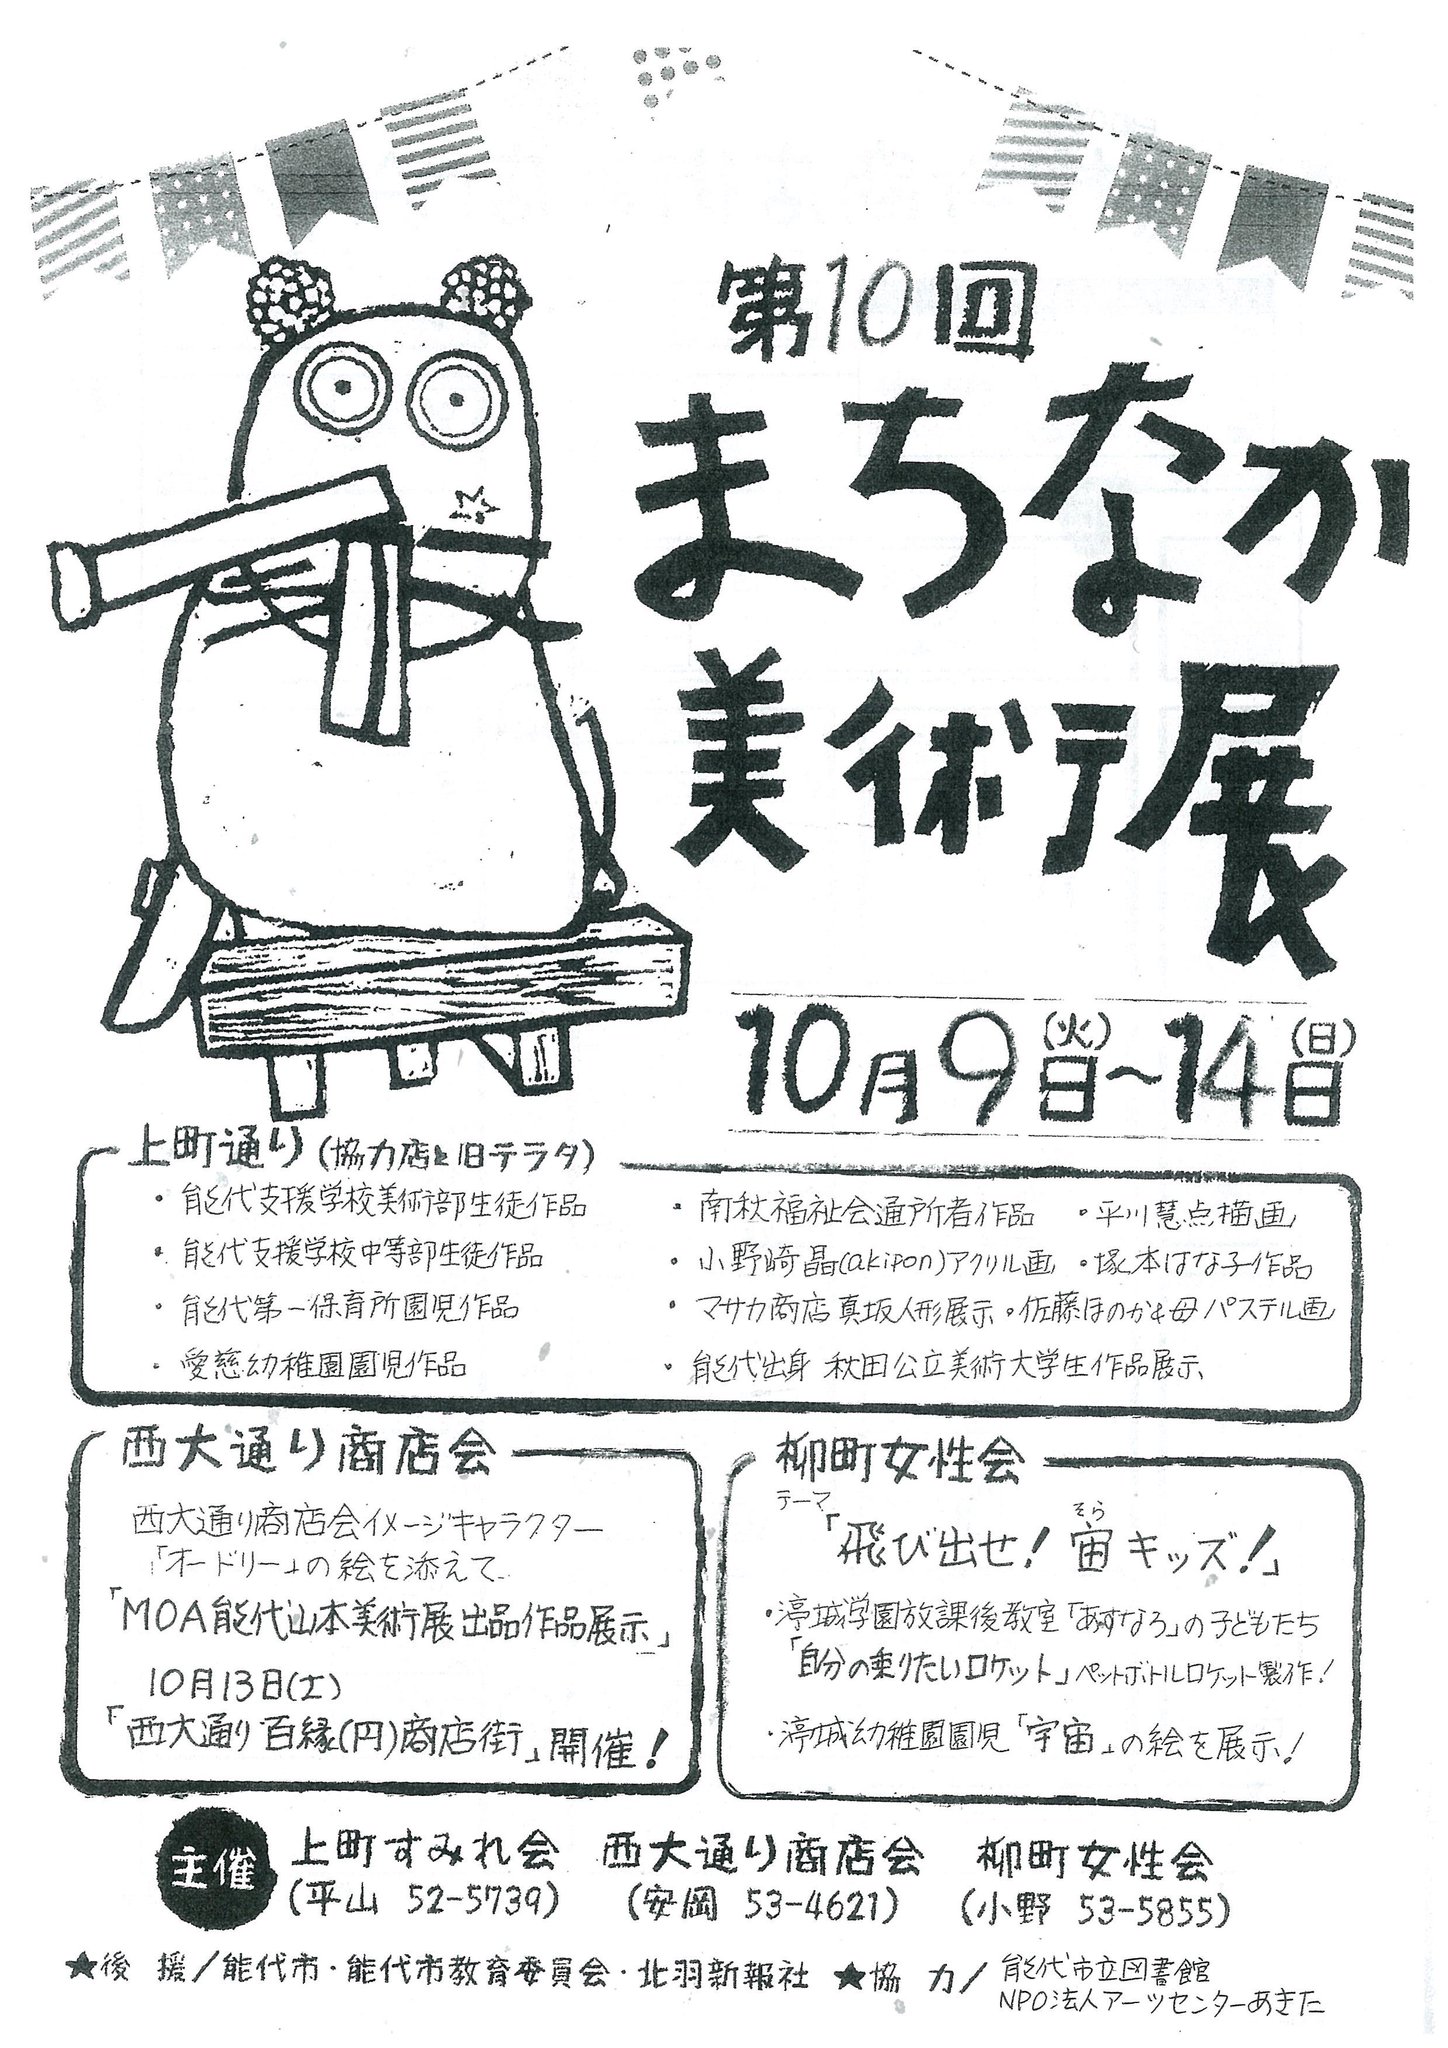 第10回
まちなか
美術展
10月9日(火)～14日(日)
上町通り(協力店と旧テラタ)
・能代支援学校美術部生徒作品
・能代支援学校中等部生徒作品
・能代第一保育所園児作品
・愛慈幼稚園園児作品
・南秋福祉会通所者作品 ・平川慧点描画
・小野崎晶(akipon)アクリル画 ・塚本はな子作品
・マサカ商店真坂人形展示 ・佐藤ほのか&母パステル画
・能代出身 秋田公立美術大学生作品展示
西大通り商店会
西大通り商店会イメージキャラクター
「オードリー」の絵を添えて
「MOA能代山本美術展出品作品展示」
10月13日(土)
「西大通り百縁(円)商店街」開催!
柳町女性会
テーマ
そら
「飛び出せ!宙キッズ!」
・渟城学園放課後教室「あすなろ」の子どもたち
「自分の乗りたいロケット」ペットボトルロケット製作!
・渟城幼稚園園児「宇宙」の絵を展示!
主催
上町すみれ会 西大通り商店会 柳町女性会
(平山 52-5739) (安岡 53-4621) (小野 53-5855)
★後 援/能代市・能代市教育委員会・北羽新報社 ★協 力/能代市立図書館
NPO法人アーツセンターあきた